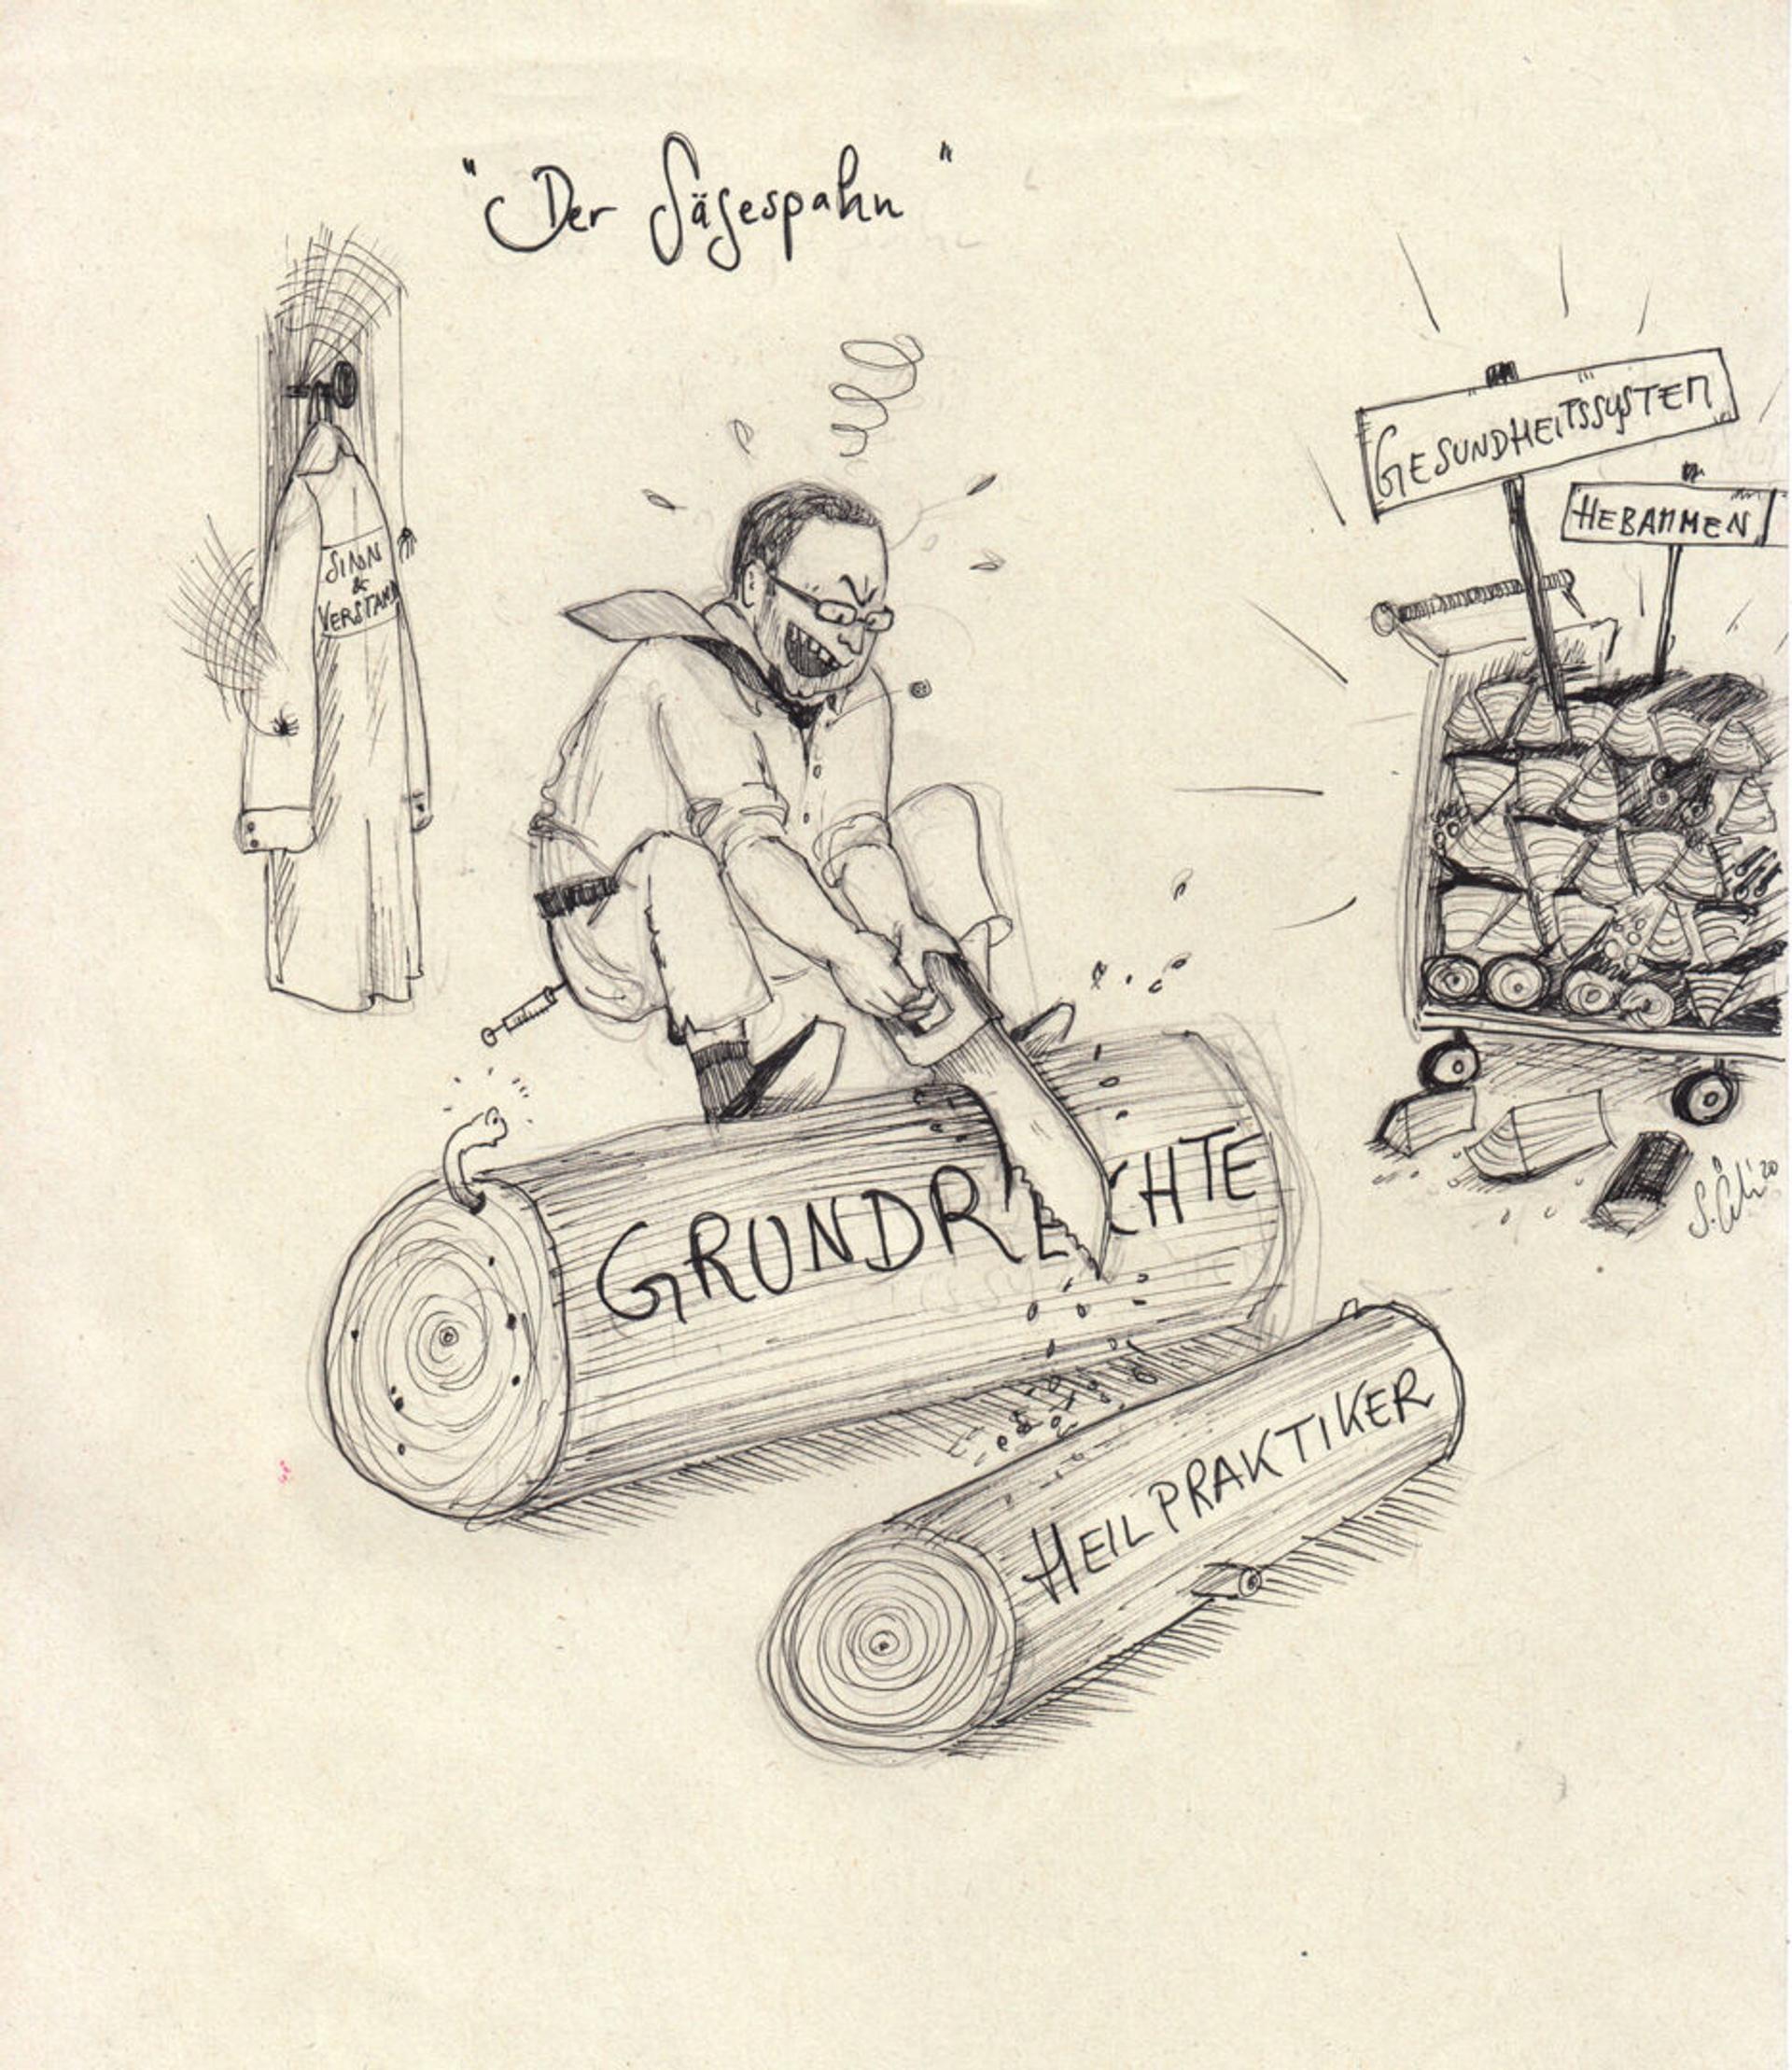 "Der Sägespahn"
SINN
&
VERSTAND
GESUNDHEITSSYSTEM
HEBAMMEN
GRUNDRECHTE
HEILPRAKTIKER
'20